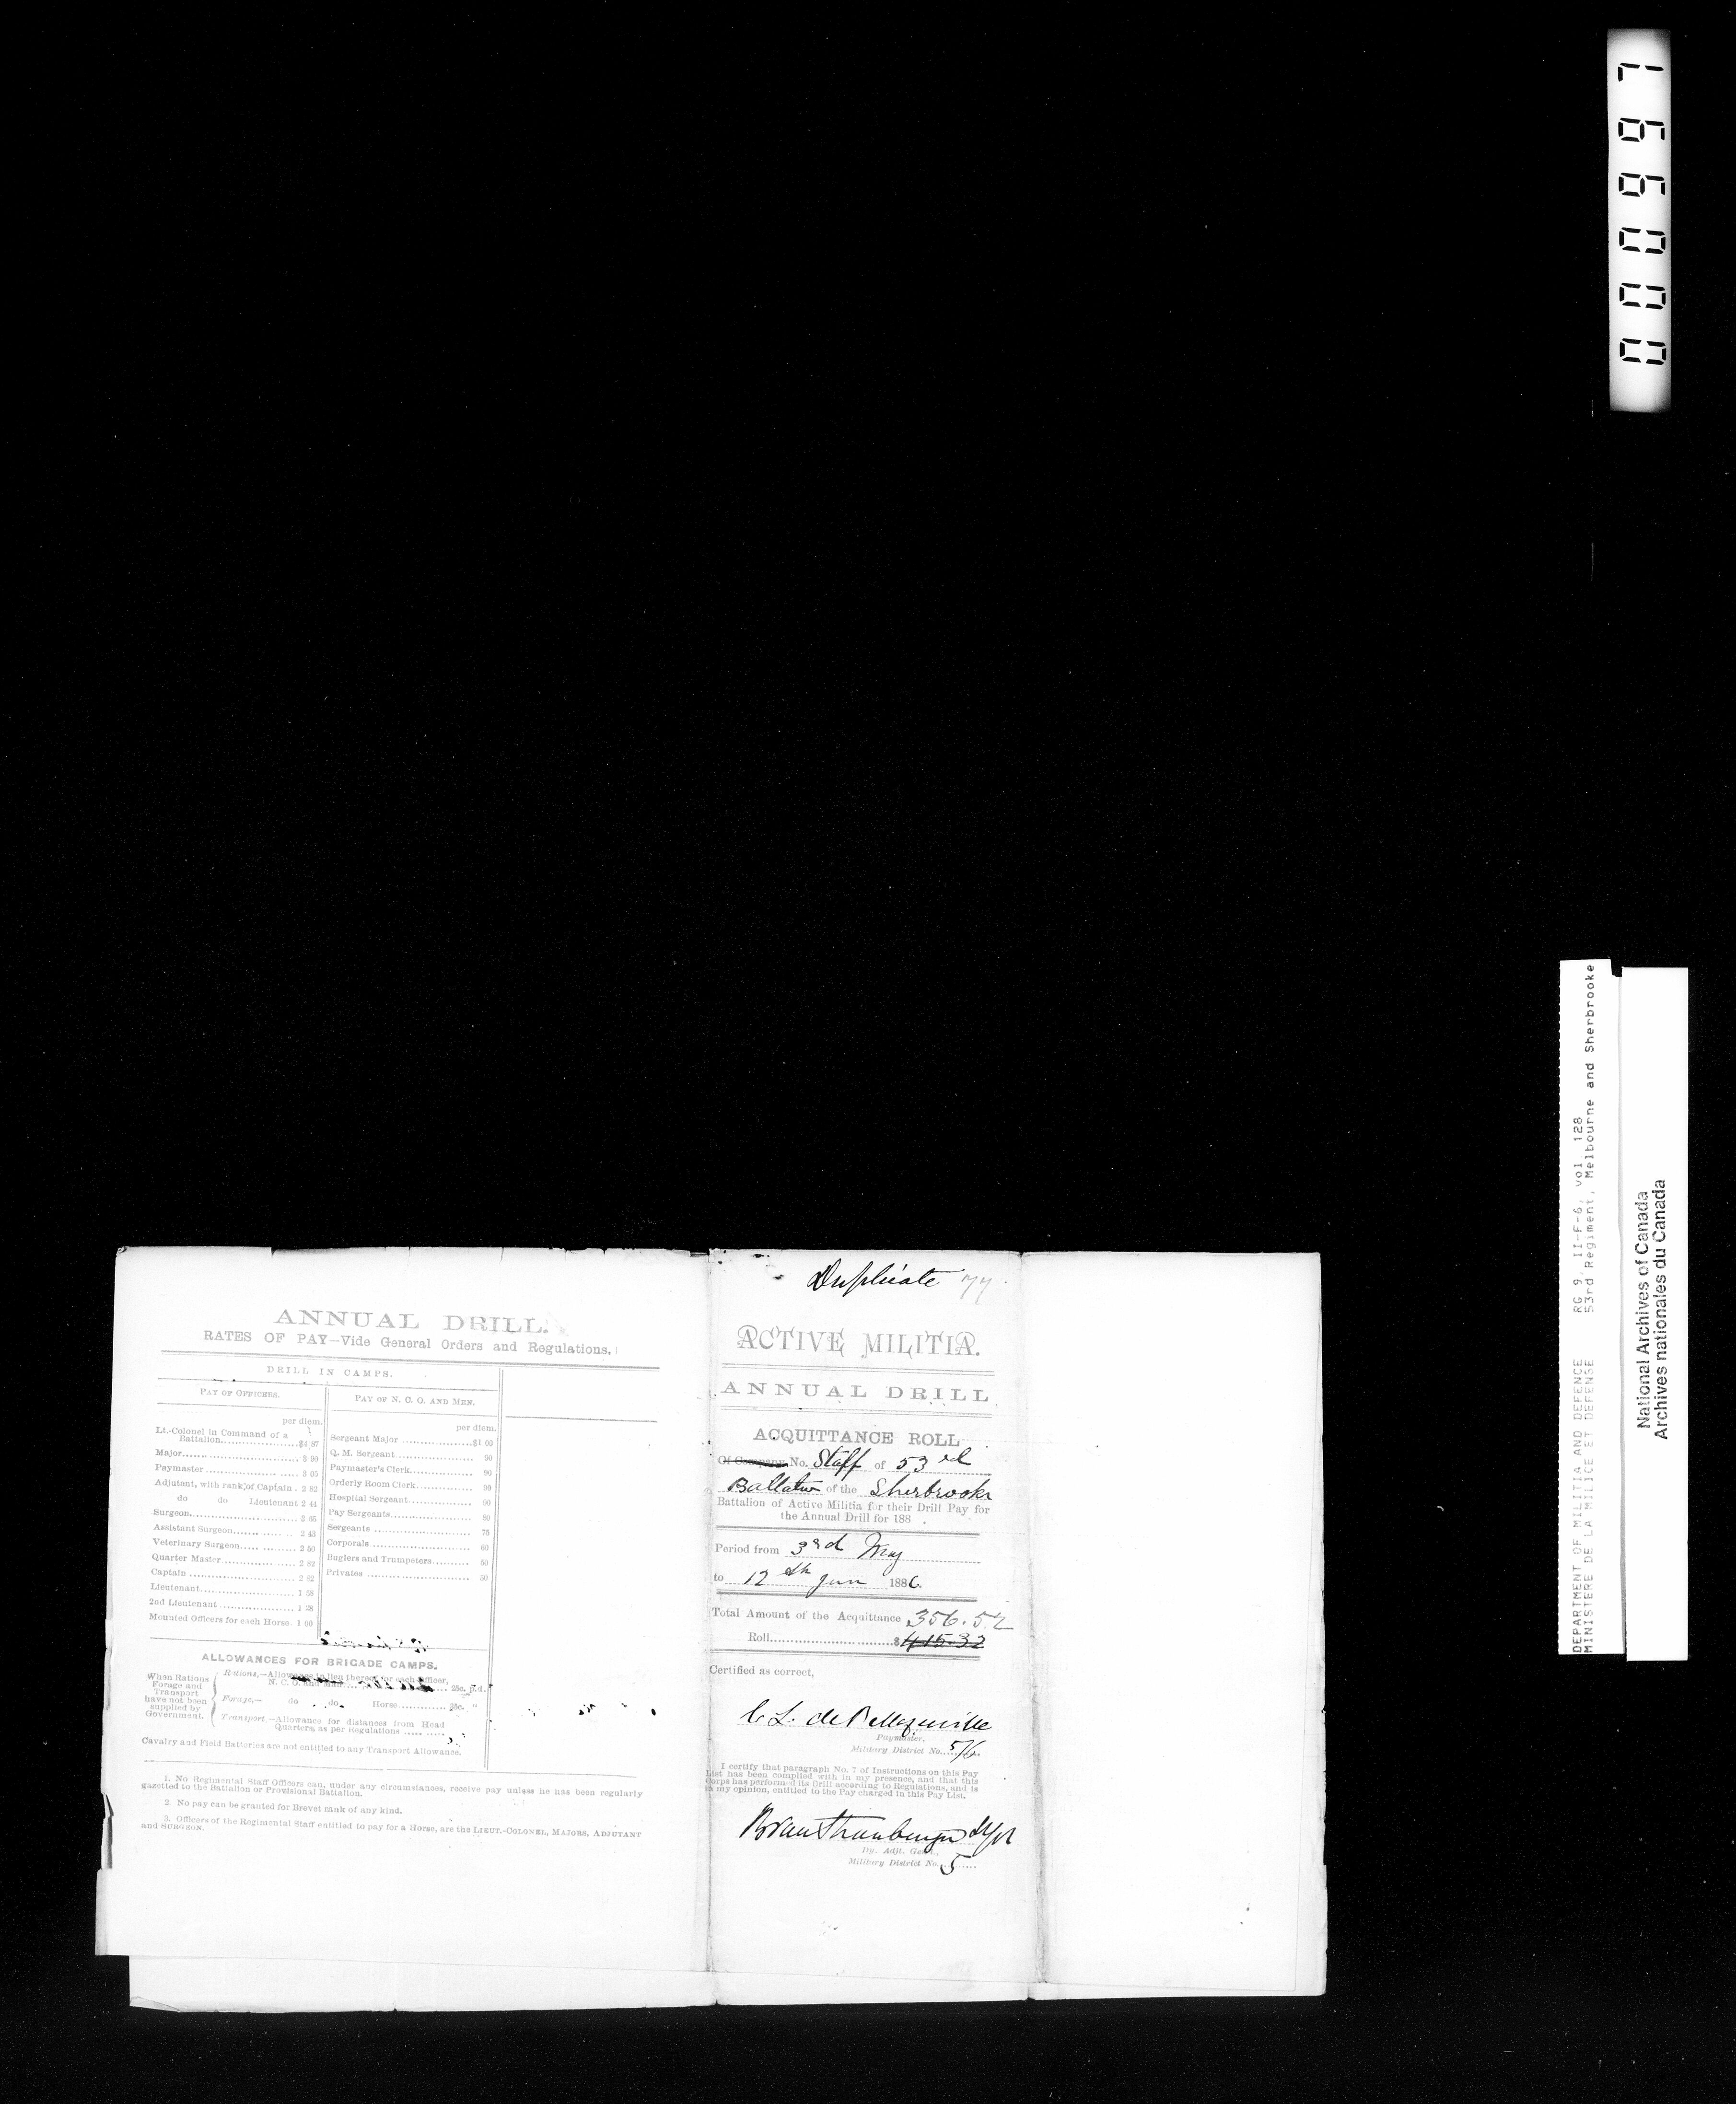 000997
DEPARTMENT OF MILITIA AND DEFENCE RG 9, II-F-6, vol. 128
MINISTERE DE LA MILICE ET DEFENSE 53rd Regiment, Melbourne and Sherbrooke
National Archives of Canada
Archives nationales du Canada
ANNUAL DRILL.
RATES OF PAY—Vide General Orders and Regulations.
DRILL IN CAMPS.
PAY OF OFFICERS.
per diem.
Lt.-Colonel in Command of a
Battalion..............$4 87
Major.............
Paymaster............ 3 05
Adjutant, with rank of Captain . 2 82
do do Lieutenant 2 44
Surgeon............ 3 65
Assistant Surgeon............ 2 43
Veterinary Surgeon............ 2 50
Quarter Master............ 2 82
Captain ............ 2 82
Lieutenant............ 1 58
2nd Lieutenant ............ 1 28
Mounted Officers for each Horse. 1 00
PAY OF N. C. O. AND MEN.
per diem.
Sergeant Major ............$1 00
Q. M. Sergeant ............ 90
Paymaster's Clerk............ 90
Orderly Room Clerk............ 90
Hospital Sergeant............ 90
Pay Sergeants............ 80
Sergeants ............ 75
Corporals............ 60
Buglers and Trumpeters......... 50
Privates ............ 50
ALLOWANCES FOR BRIGADE CAMPS.
When Rations
Forage and
Transport
have not been
supplied by
Government.
Rations.—Allowance in lieu thereof for each Officer,
N. C. O. and Man............ 25c. p.d.
Forage.— do do Horse............ 35c. "
Transport.—Allowance for distances from Head
Quarters, as per Regulations ............
Cavalry and Field Batteries are not entitled to any Transport Allowance.
1. No Regimental Staff Officers can, under any circumstances, receive pay unless he has been regularly
gazetted to the Battalion or Provisional Battalion.
2. No pay can be granted for Brevet rank of any kind.
3. Officers of the Regimental Staff entitled to pay for a Horse, are the LIEUT.-COLONEL, MAJORS, ADJUTANT
and SURGEON.
Duplicate 77
ACTIVE MILITIA.
ANNUAL DRILL
ACQUITTANCE ROLL
Of Company No. Staff of 53rd
Battalion of the Sherbrooke
Battalion of Active Militia for their Drill Pay for
the Annual Drill for 188 .
Period from 3rd May
to 12th June 1886.
Total Amount of the Acquittance 356.52
Roll............$ 415.32
Certified as correct,
Paymaster.
Military District No. 5/6.
I certify that paragraph No. 7 of Instructions on this Pay
List has been complied with in my presence, and that this
Corps has performed its Drill according to Regulations, and is
in my opinion, entitled to the Pay charged in this Pay List.
Dy. Adjt. Genl.
Military District No. 5